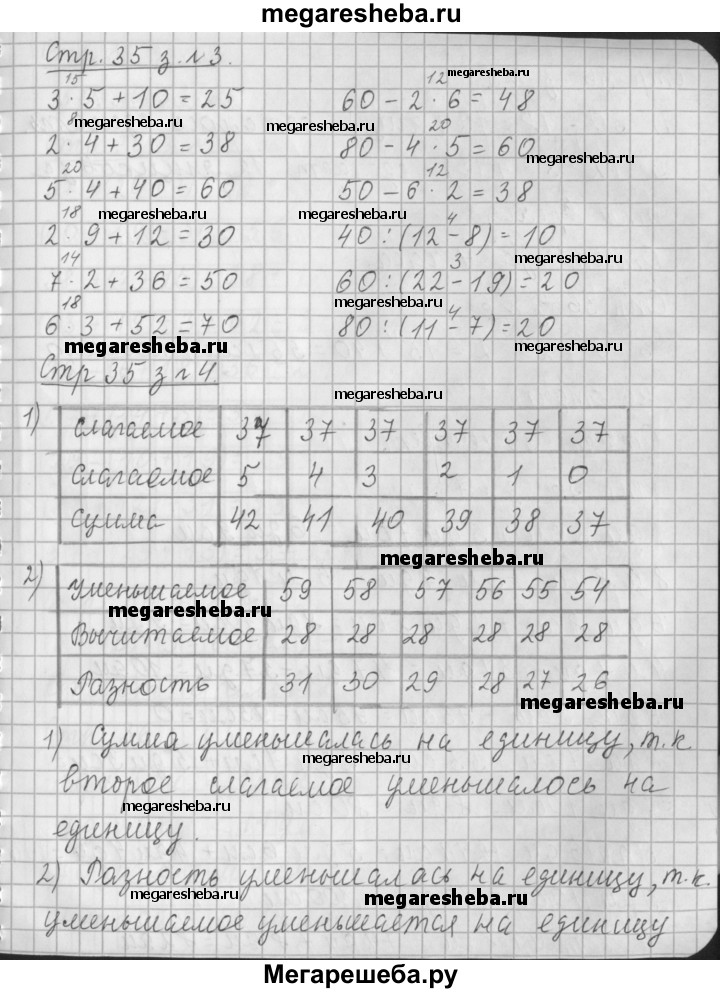 megaresheba.ru
Стр. 35 з. №3.
15 12 megaresheba.ru
3 · 5 + 10 = 25 60 - 2 · 6 = 48
8 megaresheba.ru megaresheba.ru 20
2 · 4 + 30 = 38 80 - 4 · 5 = 60
20 12 megaresheba.ru
5 · 4 + 40 = 60 50 - 6 · 2 = 38
18 megaresheba.ru megaresheba.ru 4
2 · 9 + 12 = 30 40 : (12 - 8) = 10
14 3 megaresheba.ru
7 · 2 + 36 = 50 60 : (22 - 19) = 20
18 megaresheba.ru 4
6 · 3 + 52 = 70 80 : (11 - 7) = 20
megaresheba.ru megaresheba.ru
Стр 35 з №4.
megaresheba.ru
1) слагаемое 37 37 37 37 37 37
Слагаемое 5 4 3 2 1 0
Сумма 42 41 40 39 38 37
megaresheba.ru
2) Уменьшаемое 59 58 57 56 55 54
megaresheba.ru
Вычитаемое 28 28 28 28 28 28
Разность 31 30 29 28 27 26
megaresheba.ru
1) Сумма уменьшалась на единицу, т.к
megaresheba.ru
второе слагаемое уменьшалось на
megaresheba.ru
единицу.
2) Разность уменьшалась на единицу, т.к.
megaresheba.ru megaresheba.ru
уменьшаемое уменьшается на единицу
Мегарешеба.ру